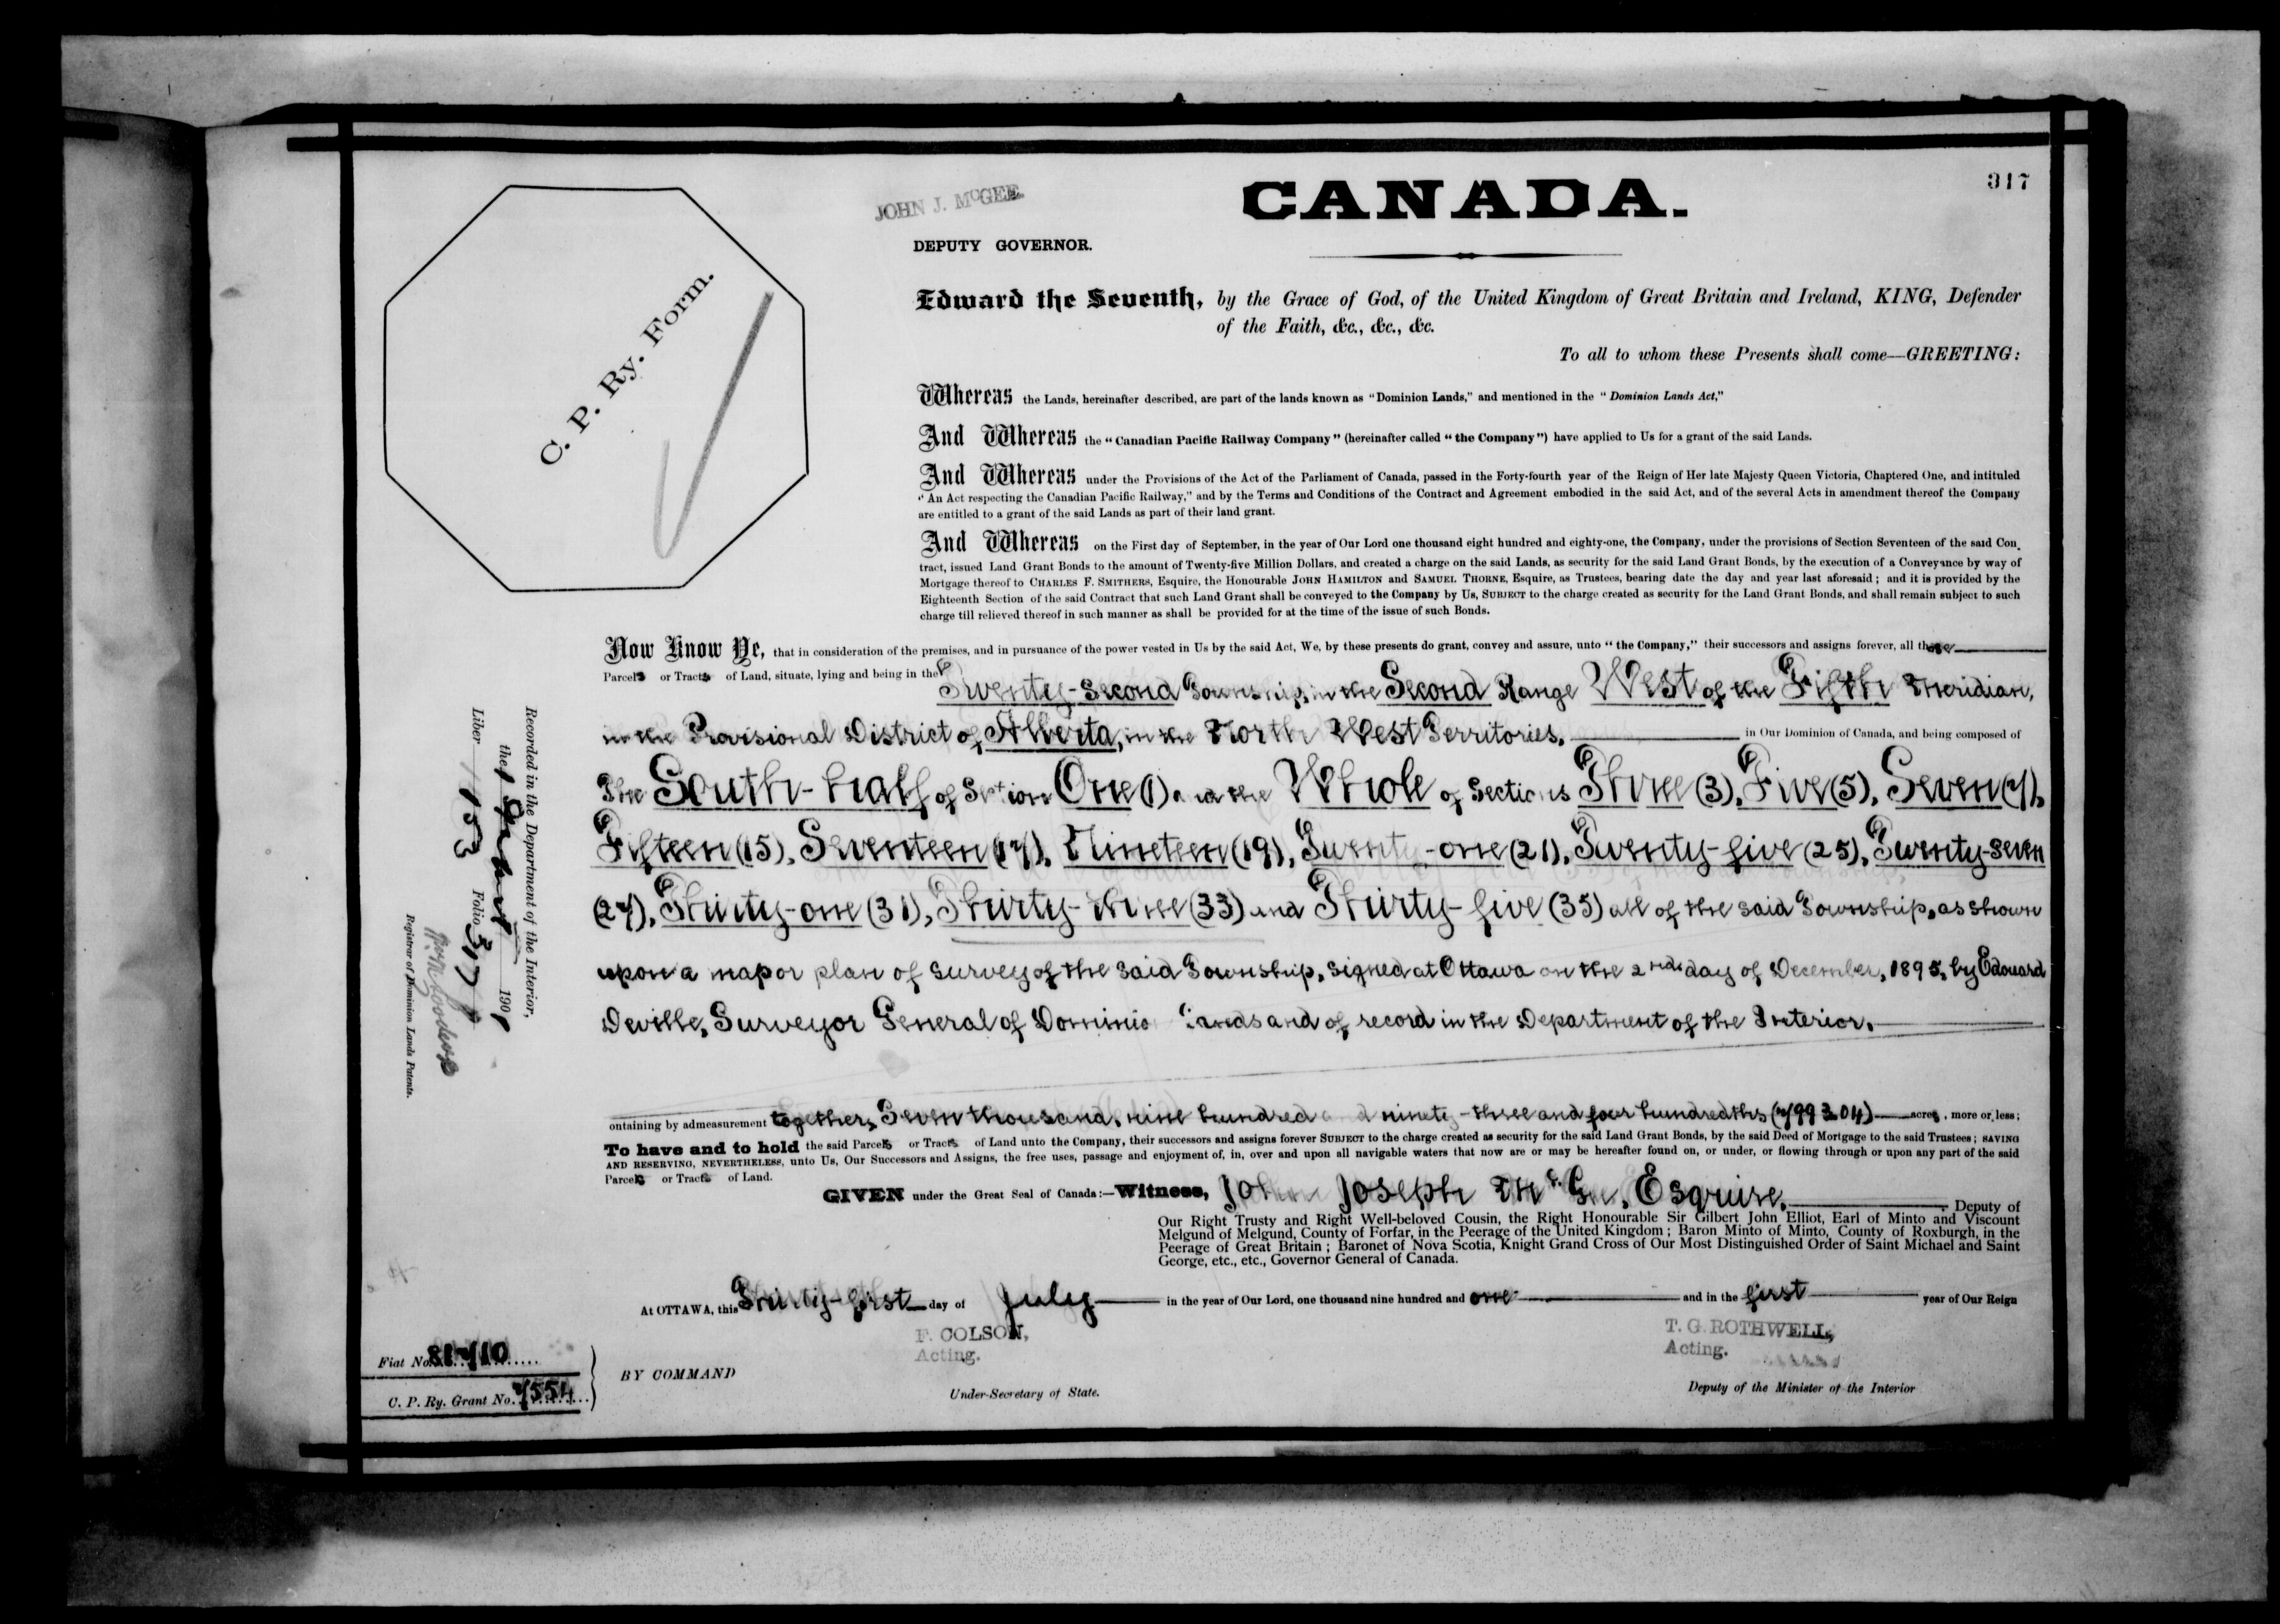 317
JOHN J. McGEE.
CANADA.
DEPUTY GOVERNOR.
C. P. Ry. Form.
Edward the Seventh, by the Grace of God, of the United Kingdom of Great Britain and Ireland, KING, Defender
of the Faith, &c., &c., &c.
To all to whom these Presents shall come—GREETING:
Whereas the Lands, hereinafter described, are part of the lands known as "Dominion Lands," and mentioned in the "Dominion Lands Act,"
And Whereas the "Canadian Pacific Railway Company" (hereinafter called "the Company") have applied to Us for a grant of the said Lands.
And Whereas under the Provisions of the Act of the Parliament of Canada, passed in the Forty-fourth year of the Reign of Her late Majesty Queen Victoria, Chaptered One, and intituled
"An Act respecting the Canadian Pacific Railway," and by the Terms and Conditions of the Contract and Agreement embodied in the said Act, and of the several Acts in amendment thereof the Company
are entitled to a grant of the said Lands as part of their land grant.
And Whereas on the First day of September, in the year of Our Lord one thousand eight hundred and eighty-one, the Company, under the provisions of Section Seventeen of the said Con-
tract, issued Land Grant Bonds to the amount of Twenty-five Million Dollars, and created a charge on the said Lands, as security for the said Land Grant Bonds, by the execution of a Conveyance by way of
Mortgage thereof to CHARLES F. SMITHERS, Esquire, the Honourable JOHN HAMILTON and SAMUEL THORNE, Esquire, as Trustees, bearing date the day and year last aforesaid; and it is provided by the
Eighteenth Section of the said Contract that such Land Grant shall be conveyed to the Company by Us, SUBJECT to the charge created as security for the Land Grant Bonds, and shall remain subject to such
charge till relieved thereof in such manner as shall be provided for at the time of the issue of such Bonds.
Now Know Ye, that in consideration of the premises, and in pursuance of the power vested in Us by the said Act, We, by these presents do grant, convey and assure, unto "the Company," their successors and assigns forever, all those
Parcels or Tracts of Land, situate, lying and being in the Twenty-Second Township, in the Second Range West of the Fifth Meridian,
in the Provisional District of Alberta, in the North West Territories, in Our Dominion of Canada, and being composed of
The South-half of Section One (1) and the Whole of Sections Three (3), Five (5), Seven (7),
Fifteen (15), Seventeen (17), Nineteen (19), Twenty-one (21), Twenty-five (25), Twenty-seven
(27), Thirty-one (31), Thirty-three (33) and Thirty-five (35) all of the said Township, as shown
upon a map or plan of survey of the said Township, signed at Ottawa on the 2nd day of December, 1895, by Edouard
Deville, Surveyor General of Dominion Lands and of record in the Department of the Interior.
ontaining by admeasurement together, Seven thousand, nine hundred and ninety-three and four hundredths (7993.04) acres, more or less;
To have and to hold the said Parcels or Tracts of Land unto the Company, their successors and assigns forever SUBJECT to the charge created as security for the said Land Grant Bonds, by the said Deed of Mortgage to the said Trustees; SAVING
AND RESERVING, NEVERTHELESS, unto Us, Our Successors and Assigns, the free uses, passage and enjoyment of, in, over and upon all navigable waters that now are or may be hereafter found on, or under, or flowing through or upon any part of the said
Parcels or Tracts of Land.
GIVEN under the Great Seal of Canada:—Witness, John Joseph McGee, Esquire, Deputy of
Our Right Trusty and Right Well-beloved Cousin, the Right Honourable Sir Gilbert John Elliot, Earl of Minto and Viscount
Melgund of Melgund, County of Forfar, in the Peerage of the United Kingdom; Baron Minto of Minto, County of Roxburgh, in the
Peerage of Great Britain; Baronet of Nova Scotia, Knight Grand Cross of Our Most Distinguished Order of Saint Michael and Saint
George, etc., etc., Governor General of Canada.
At OTTAWA, this Thirty-first day of July in the year of Our Lord, one thousand nine hundred and one and in the first year of Our Reign
P. COLSON,
Acting.
Under-Secretary of State.
T. G. ROTHWELL,
Acting.
Deputy of the Minister of the Interior
BY COMMAND
Fiat No. 81710
C. P. Ry. Grant No. 7554
Recorded in the Department of the Interior,
the 1901
Liber 153 Folio 317
Registrar of Dominion Lands Patents.